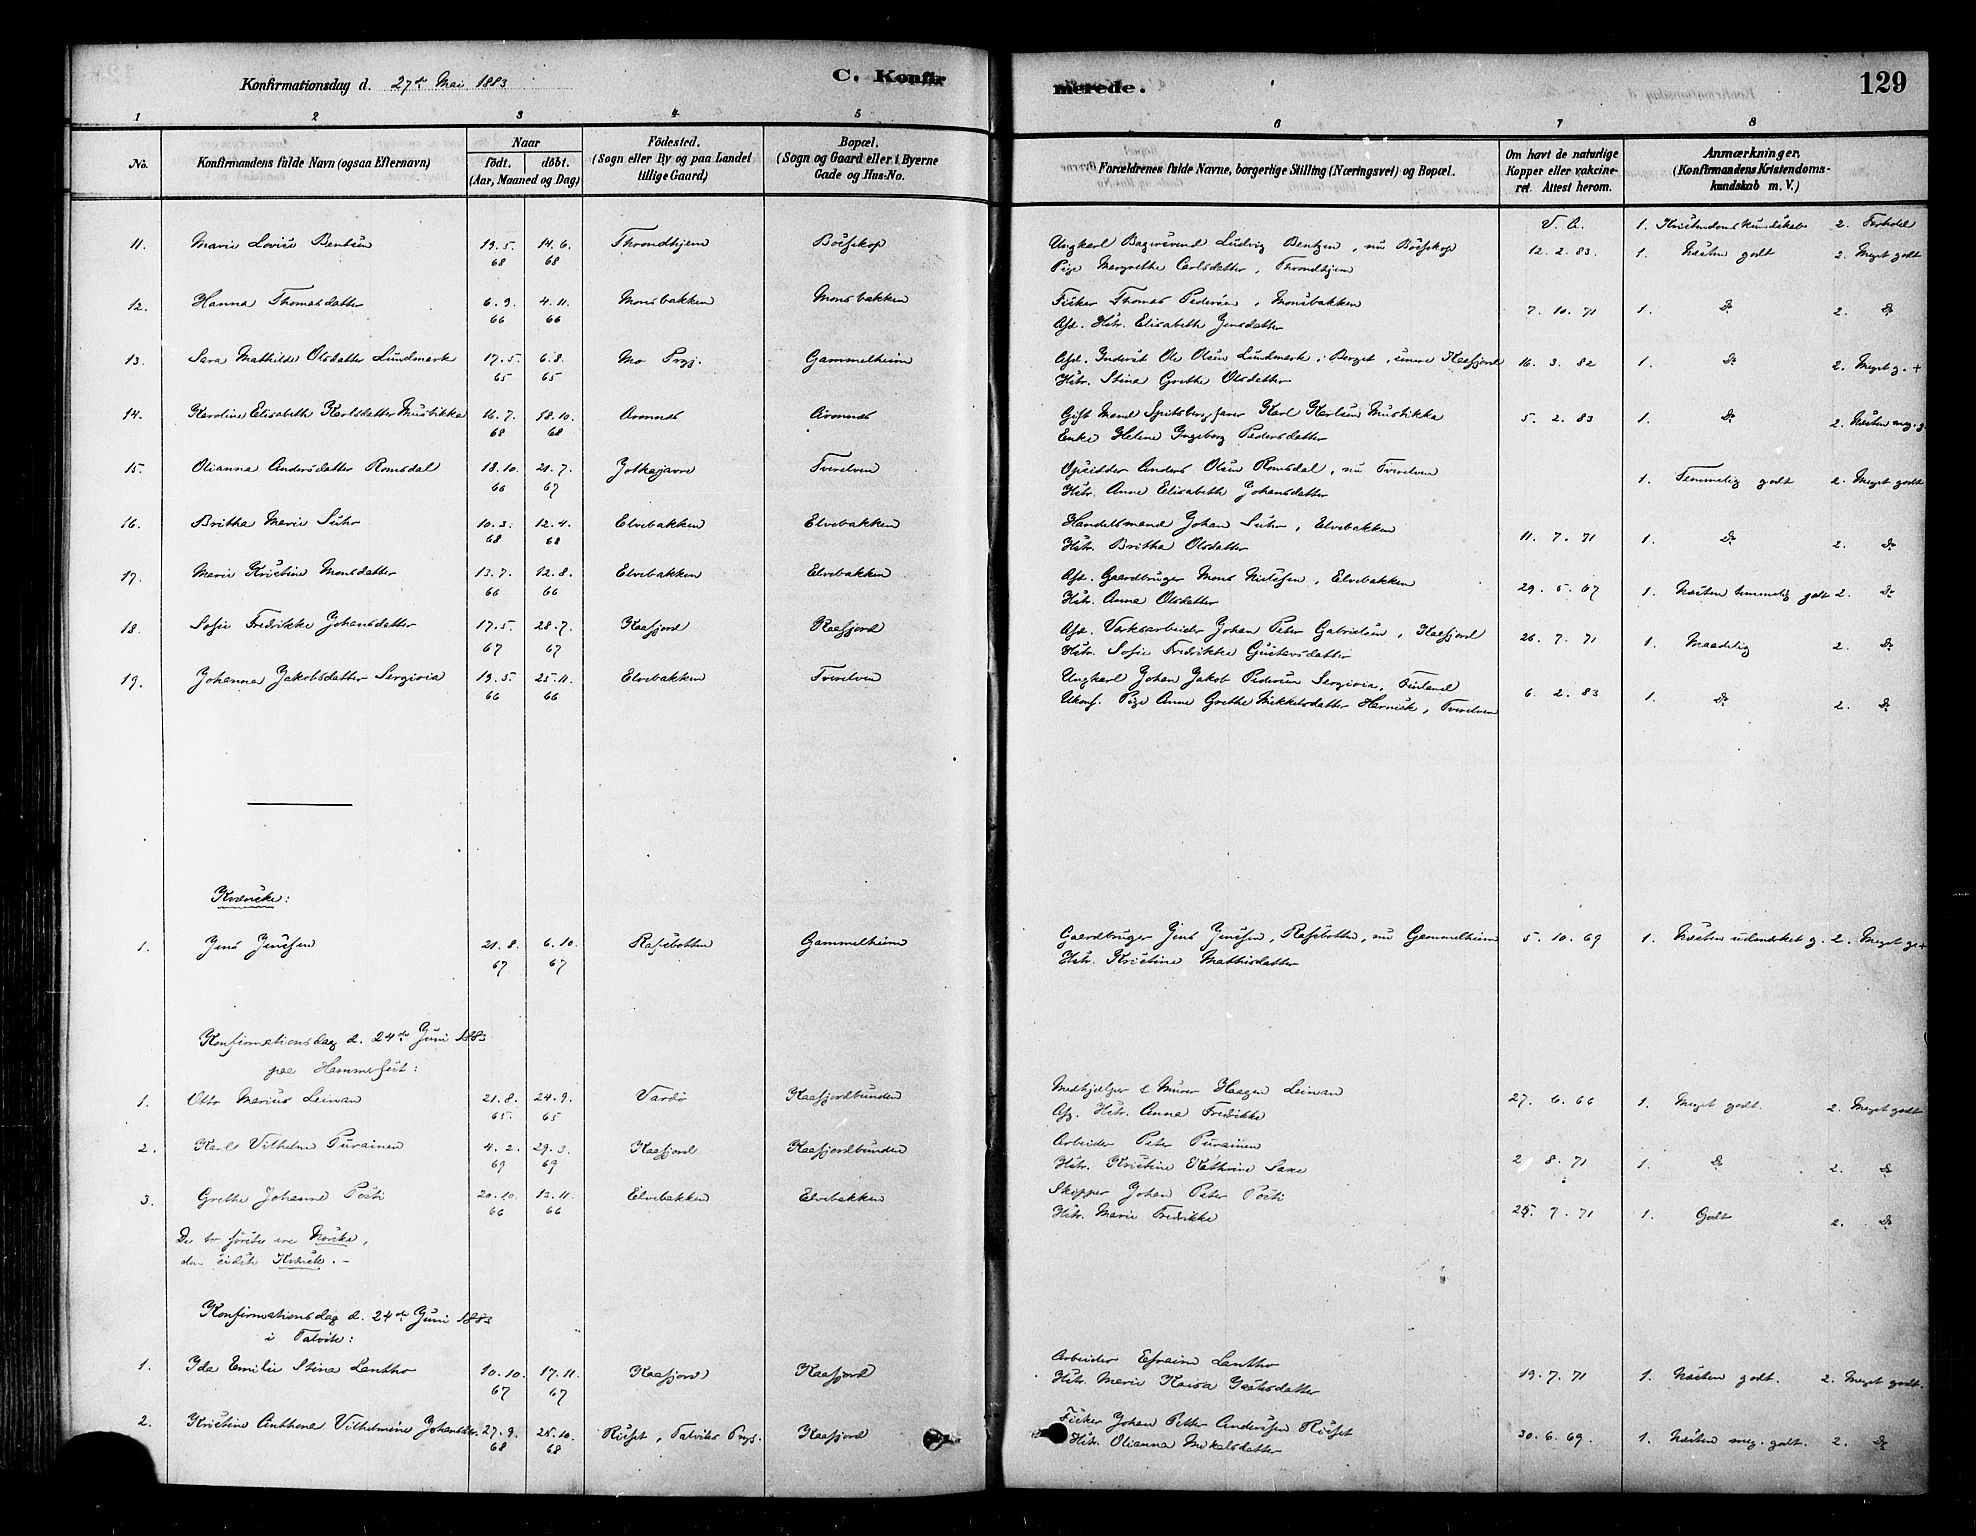 Konfirmationsdag d. 27de Mai 1883
C. Konfirmerede.
129
1 2 3 4 5 6 7 8
No.
Konfirmandens fulde Navn (ogsaa Efternavn)
Naar
født. døbt.
(Aar, Maaned og Dag)
Födested.
(Sogn eller By og paa Landet
tillige Gaard)
Bopæl.
(Sogn og Gaard eller i Byerne
Gade og Hus-No.
Forældrenes fulde Navne, borgerlige Stilling (Næringsvei) og Bopæl.
Om havt de naturlige
Kopper eller vakcine-
ret. Attest herom.
Anmærkninger.
(Konfirmandens Kristendoms-
kundskab m. V.)
V. A. 1. Kristendomskundskab 2. Forhold
11. Marie Lovise Bentsen 19.5. 68 14.6. 68 Throndhjem Bossekop
Ungkarl Bagersvend Ludvig Bentzen, nu Bossekop
Pige Margrethe Carlsdatter, Throndhjem
12. 2. 83. 1. Næsten godt 2. Meget godt
12. Hanna Thomasdatter 6.9. 66 4.11. 66 Monsbakken Monsbakken
Fisker Thomas Pedersen, Monsbakken
Afd. Hstr. Elisabeth Jensdatter
7. 10. 71 1. Do 2. Do
13. Sara Mathilde Olsdatter Lundmark 17.5. 65 6.8. 65 Mo Prgj. Gammelheim
Afd. Inderst Ole Olsen Lundmark i Berget, senere Kaafjord
Hstr. Stina Grethe Olsdatter
16. 3. 82 1. Do 2. Meget g. +
14. Karoline Elisabeth Karlsdatter Mustikka 16.7. 68 18.10. 68 Aronnes Aronnes
Gift Mand Spitsbergfarer Karl Karlsen Mustikka
Enke Helene Ingeborg Pedersdatter
5. 2. 83 1. Do 2. Næsten meg. g.
15. Olianna Andersdatter Romsdal 18.10. 66 21.7. 67 Jotkajavre Tverelven
Opsidder Anders Olsen Romsdal, nu Tverelven
Hstr. Anne Elisabeth Johansdatter
1. Temmelig godt 2. Meget godt
16. Britha Marie Suhr 10.3. 68 12.4. 68 Elvebakken Elvebakken
Handelsmand Johan Suhr, Elvebakken
Hstr. Britha Olsdatter
11. 7. 71 1. Do 2. Do
17. Marie Kristine Monsdatter 13.7. 66 12.8. 66 Elvebakken Elvebakken
Afd. Gaardbruger Mons Nielsen, Elvebakken
Hstr. Anna Olsdatter
29. 5. 67 1. Næsten temmelig godt 2. Do
18. Sofie Fredrikke Johansdatter 17.5. 67 28.7. 67 Kaafjord Kaafjord
Afd. Verksarbeider Johan Peter Gabrielsen, Kaafjord
Hstr. Sofie Fredrikke Gustavsdatter
26. 7. 71 1. Maadelig 2. Do
19. Johanna Jakobsdatter Sergioia 19.5. 66 25.11. 66 Elvebakken Tverelven
Ungkarl Johan Jakob Pedersen Sergioia, Finland
Ukonf. Pige Anne Grethe Mikkelsdatter Harnisk, Tverelven
6. 2. 83 1. Do 2. Do
Kvænske:
1. Jens Jenssen 21.8. 67 6.10. 67 Rafsbotten Gammelheim
Gaardbruger Jens Jenssen, Rafsbotten, nu Gammelheim
Hstr. Kristine Mathisdatter
5. 10. 69 1. Næsten udmærket g. 2. Meget g. +
Konfirmationsdag d. 24de Juni 1883
paa Hammerfest:
1. Otto Marius Leinan 21.8. 65 24.9. 65 Vardø Kaafjordbunden
Medhjælper & Murer Haagen Leinan
Afg. Hstr. Anna Fredikke
27. 6. 66 1. Meget godt. 2. Meget godt
2. Karl Vilhelm Purainen 4.2. 69 29.3. 69 Kaafjord Kaafjordbunden
Arbeider Peter Purainen
Hstr. Kristine Kathrine Saxe
2. 8. 71 1. Do 2. Do
3. Grethe Johanne Pøsti 20.10. 66 13.11. 66 Elvebakken Elvebakken
Skipper Johan Peter Pøsti
Hstr. Marie Fredikke
25. 7. 71 1. Godt 2. Do
De to første ere Norske,
den sidste Kvænsk. -
Konfirmationsdag d. 24de Juni 1883
i Talvik:
1. Ida Emilie Stina Lantho 10.10. 67 17.11. 67 Kaafjord Kaafjord
Arbeider Efraim Lantho
Hstr. Marie Kaisa
19. 7. 71 1. Næsten godt. 2. Meget godt.
2. Kristine Anthona Vilhelmine Johansdtr. 27.9. 68 25.10. 68 Riset, Talviks Prgj. Kaafjord
Fisker Johan Petter Andersen Riset
Hstr. Olianna Mikalsdatter
30. 6. 69. 1. Næsten meg. godt. 2. Do